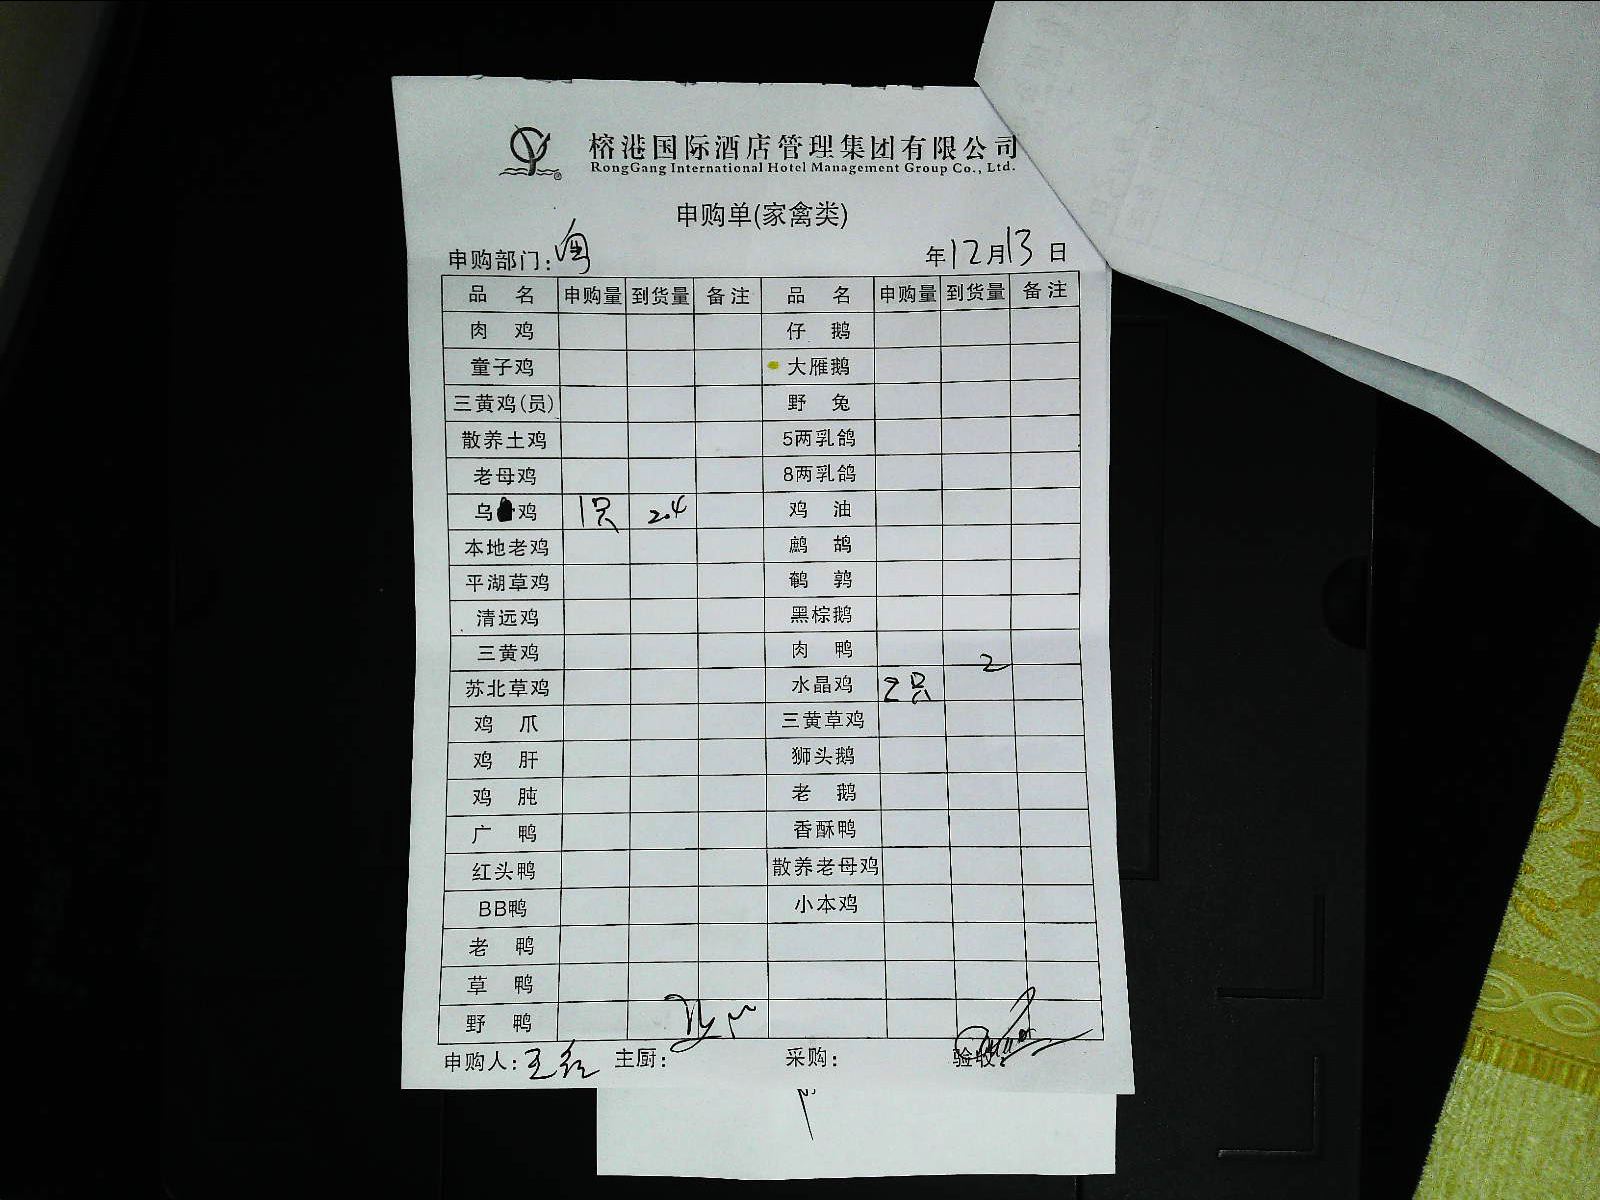 榕港国际酒店管理集团有限公司
RongGang International Hotel Management Group Co., Ltd.
申购单(家禽类)
申购部门: 粤 年12月13日
品名 申购量 到货量 备注 品名 申购量 到货量 备注
肉鸡 仔鹅
童子鸡 大雁鹅
三黄鸡(员) 野兔
散养土鸡 5两乳鸽
老母鸡 8两乳鸽
乌鸡 1只 2.4 鸡油
本地老鸡 鹧鸪
平湖草鸡 鹌鹑
清远鸡 黑棕鹅
三黄鸡 肉鸭
苏北草鸡 水晶鸡 2只 2
鸡爪 三黄草鸡
鸡肝 狮头鹅
鸡肫 老鹅
广鸭 香酥鸭
红头鸭 散养老母鸡
BB鸭 小本鸡
老鸭
草鸭
野鸭
申购人: 王红 主厨: 采购: 验收: